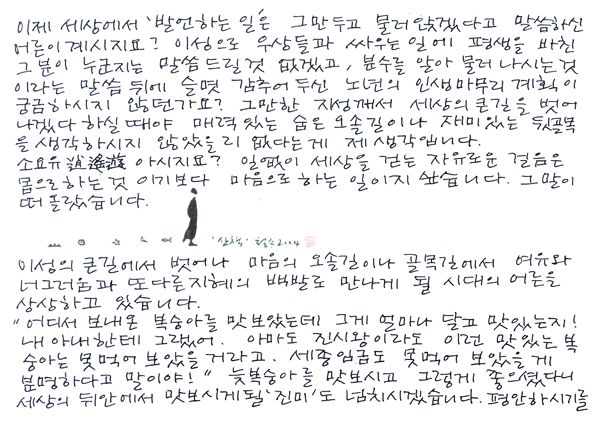 이제 세상에서 '발언하는 일'은 그만두고 물러 앉겠다고 말씀하신
어른이 계시지요? 이성으로 우상들과 싸우는 일에 평생을 바친
그 분이 누군지는 말씀드릴것 없겠고, 분수를 알아 물러 나시는 것
이라는 말씀 뒤에 슬몃 감추어 두신 노년의 인생마무리 계획이
궁금하시지 않던가요? 그만한 지성께서 세상의 큰길을 벗어
나겠다 하실 때야 매력있는 숨은 오솔길이나 재미있는 뒷골목
을 생각하시지 않았을리 없다는게 제 생각입니다.
소요유 逍遙遊 아시지요? 일없이 세상을 걷는 자유로운 걸음은
몸으로하는 것 이기보다 마음으로 하는 일이지 싶습니다. 그 말이
떠 올랐습니다.
'산책' 철수 2004
이성의 큰길에서 벗어나 마음의 오솔길이나 골목길에서 여유와
너그러움과 또다른지혜의 빠발로 만나게 될 시대의 어른을
상상하고 있습니다.
"어디서 보내온 복숭아를 맛보았는데 그게 얼마나 달고 맛있는지!
내 아내한테 그랬어. 아마도 진시왕이라도 이런 맛있는 복
숭아는 못먹어 보았을 거라고. 세종임금도 못먹어 보았을 게
분명하다고 말이야!" 늦복숭아를 맛보시고 그렇게 좋으셨다니
세상의 뒤안에서 맛보시게될 '진미'도 넘치시겠습니다. 평안하시기를